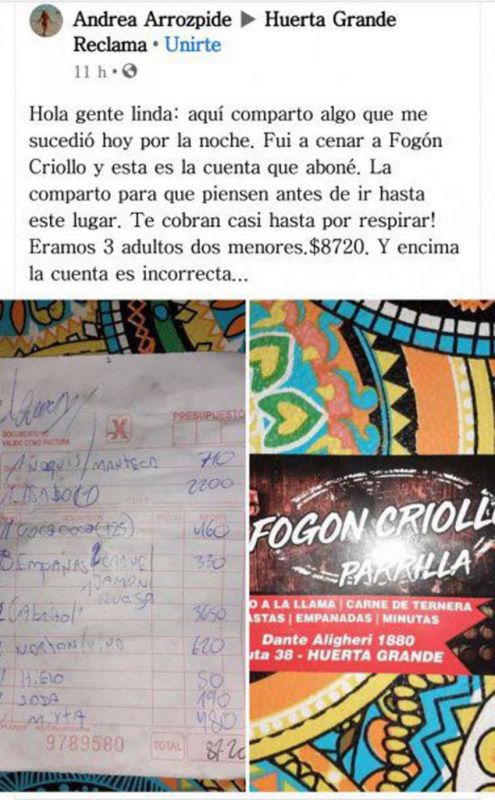 Andrea Arrozpide ▶ Huerta Grande
Reclama • Unirte
11 h •
Hola gente linda: aquí comparto algo que me
sucedió hoy por la noche. Fui a cenar a Fogón
Criollo y esta es la cuenta que aboné. La
comparto para que piensen antes de ir hasta
este lugar. Te cobran casi hasta por respirar!
Eramos 3 adultos dos menores.$8720. Y encima
la cuenta es incorrecta...
X
PRESUPUESTO
DOCUMENTO NO
VALIDO COMO FACTURA
1 ÑOQUIS/MANTECA 710
1 ASADO(1) 2200
1 COCACOCA(125) 460
3 EMPAÑAS 330
1 JAMON
QUESA
3650
NORTON/VINO 620
HIELO 50
1 SODA 190
MIXTA 480
9789580 TOTAL 8720
FOGON CRIOLL
PARRILLA
O A LA LLAMA | CARNE DE TERNERA
ASTAS | EMPANADAS | MINUTAS
Dante Aligheri 1880
uta 38 - HUERTA GRANDE